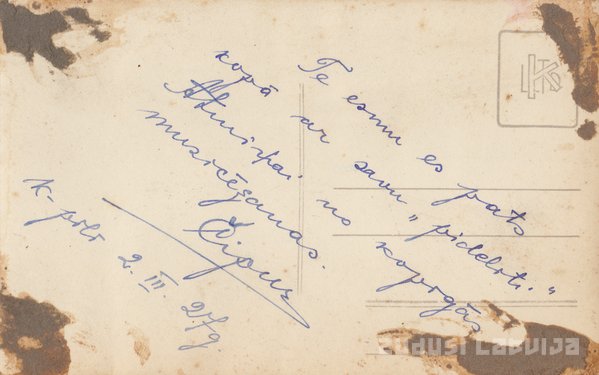 Te esmu es pats
kopā ar savu „pideloti.“
Atmiņai no kopīgās
muzicēšanas.
K-pilī 2. III. 27g.
zudusi Latvija